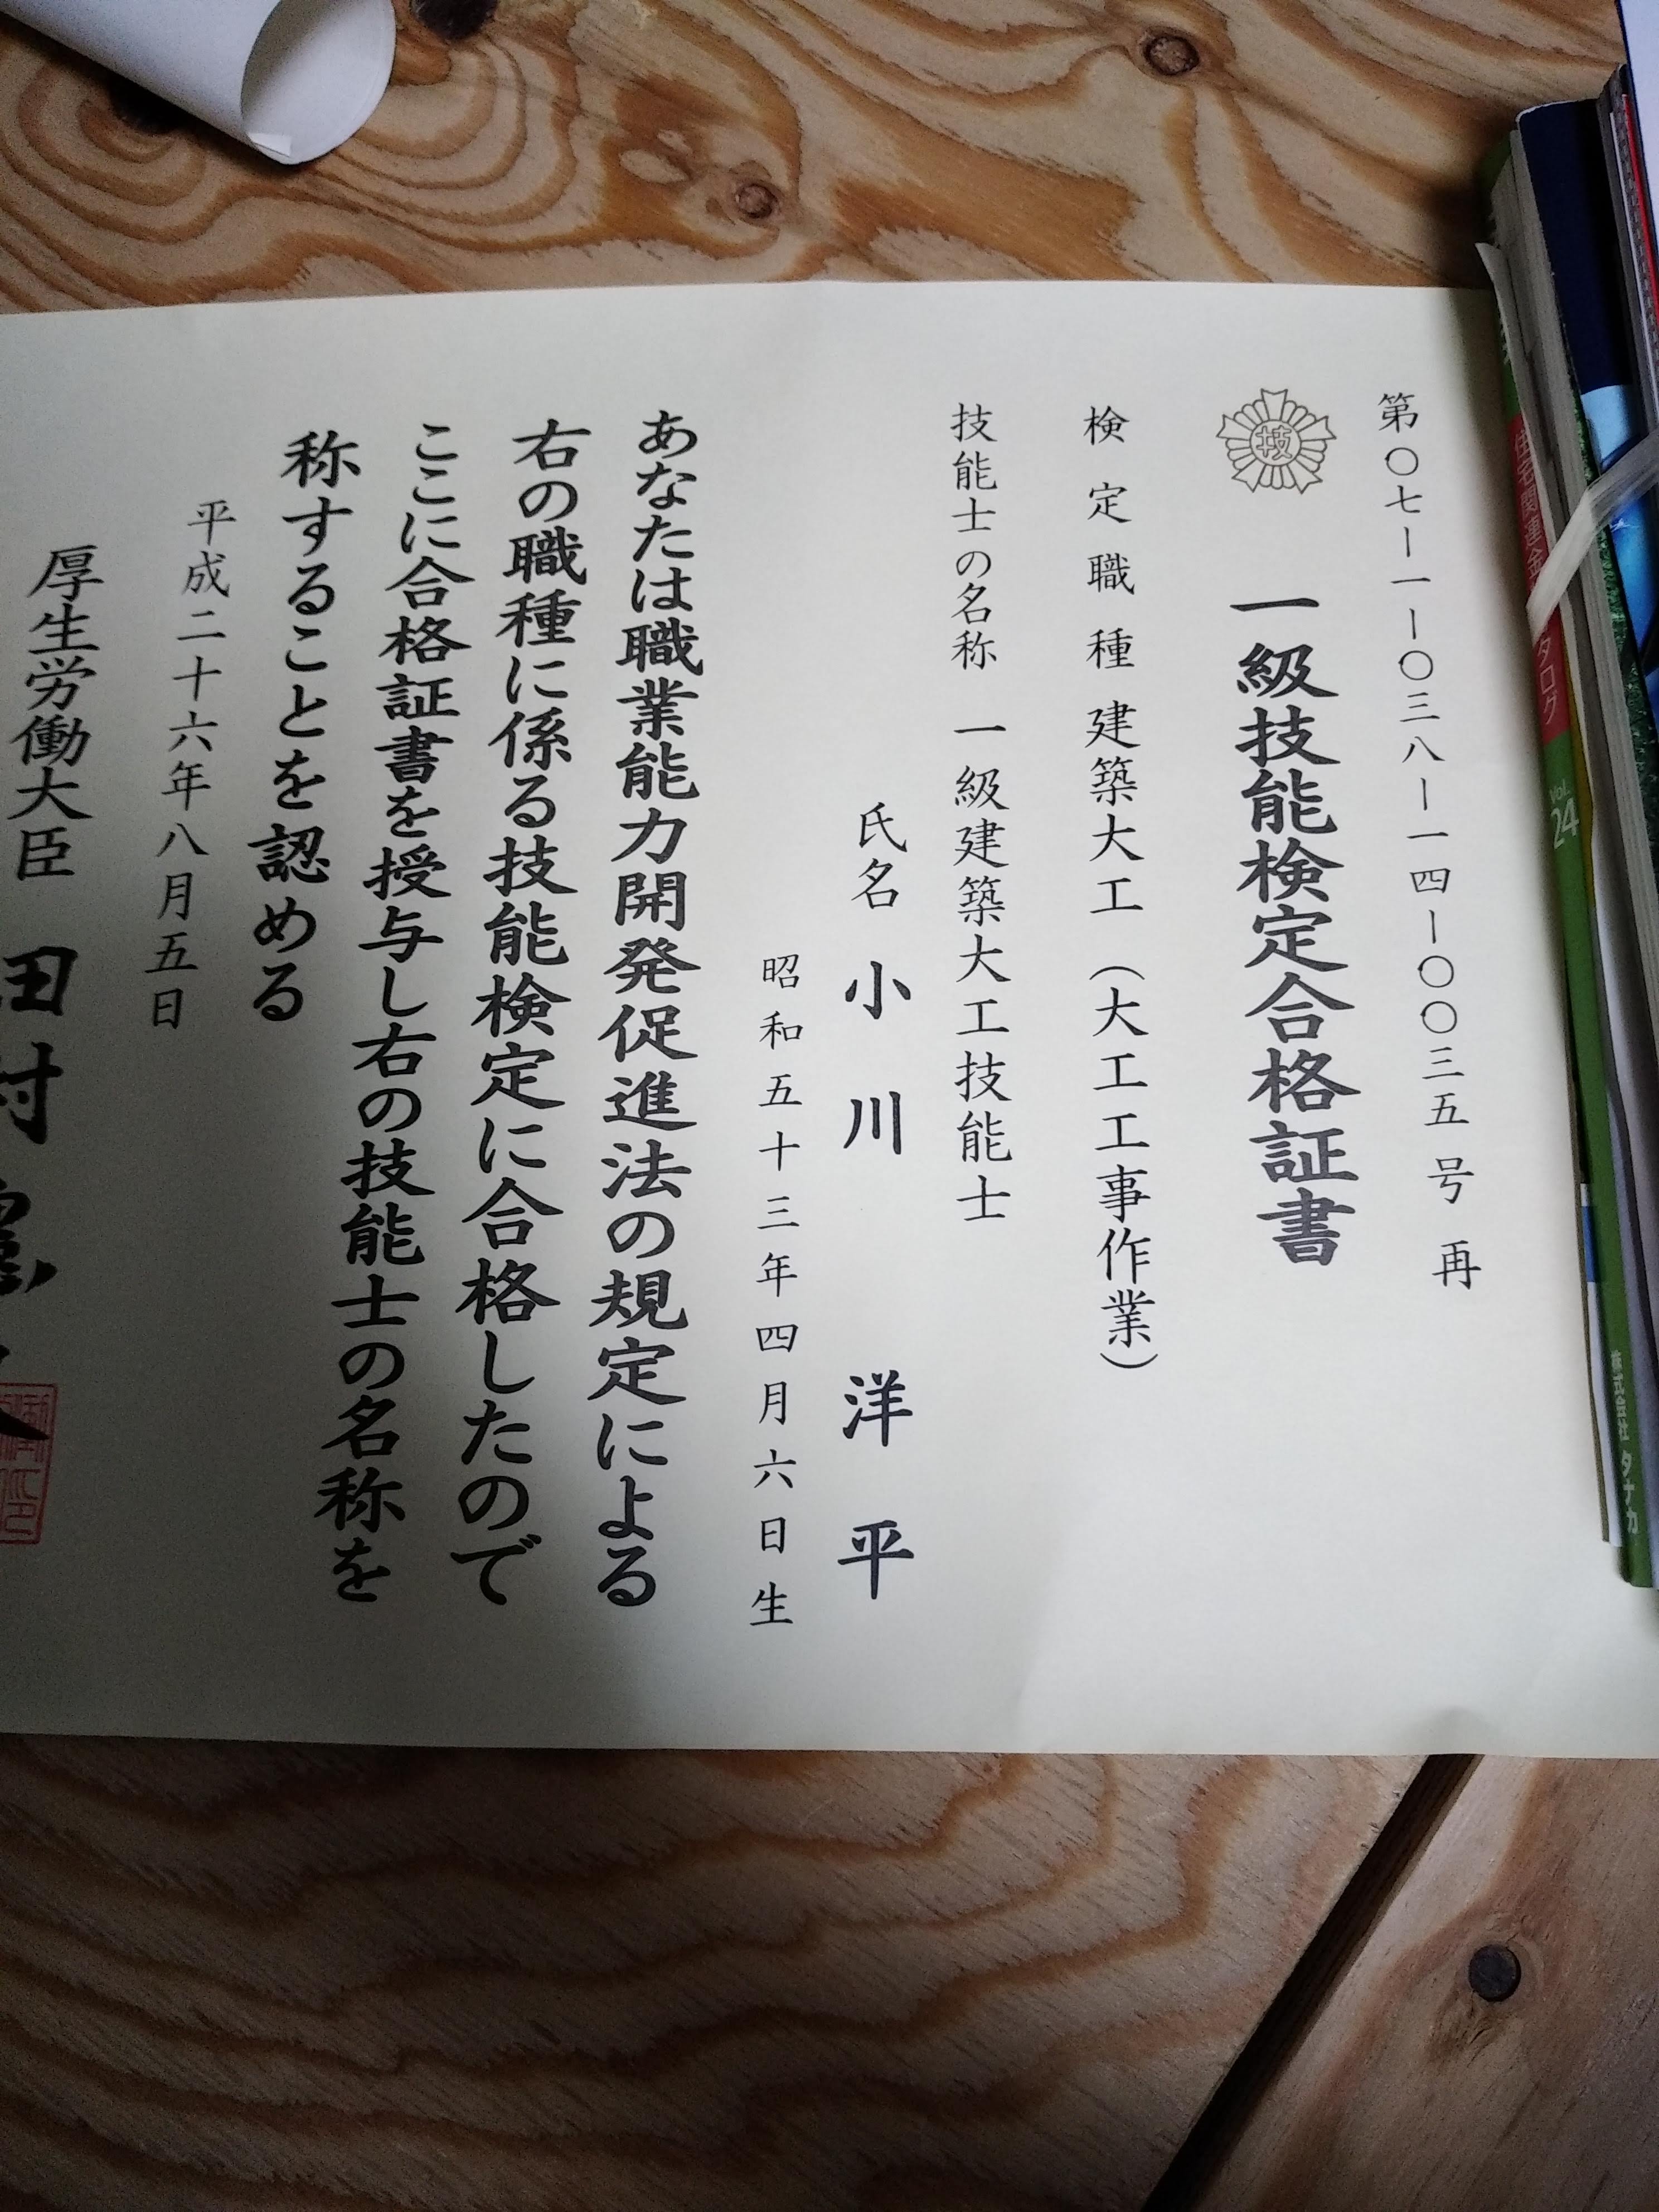 第〇七ー一ー〇三八ー一四ー〇〇三五号 再
技
一級技能検定合格証書
検定職種 建築大工(大工工事作業)
技能士の名称 一級建築大工技能士
氏名 小川 洋平
昭和五十三年四月六日生
あなたは職業能力開発促進法の規定による
右の職種に係る技能検定に合格したので
ここに合格証書を授与し右の技能士の名称を
称することを認める
平成二十六年八月五日
厚生労働大臣 田村
タログ
Vol.
24
株式会社 タナカ